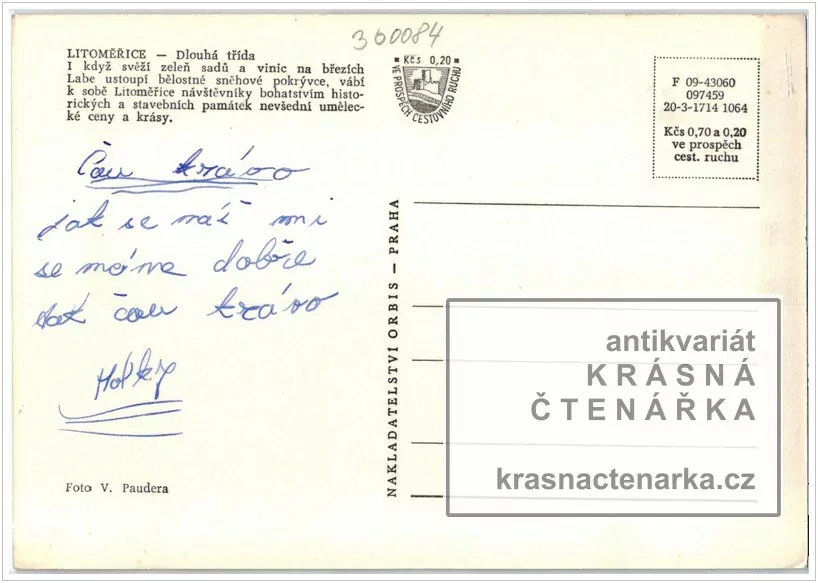 360084
LITOMĚŘICE — Dlouhá třída
I když svěží zeleň sadů a vinic na březích
Labe ustoupí bělostné sněhové pokrývce, vábí
k sobě Litoměřice návštěvníky bohatstvím histo-
rických a stavebních památek nevšední umělec-
ké ceny a krásy.
Kčs 0,20
VE PROSPĚCH CESTOVNÍHO RUCHU
F 09-43060
097459
20-3-1714 1064
Kčs 0,70 a 0,20
ve prospěch
cest. ruchu
Čau krávo
jak se máš mi
se máme dobře
tak čau krávo
Holky
Foto V. Paudera
NAKLADATELSTVÍ ORBIS — PRAHA
antikvariát
KRÁSNÁ
ČTENÁŘKA
krasnactenarka.cz